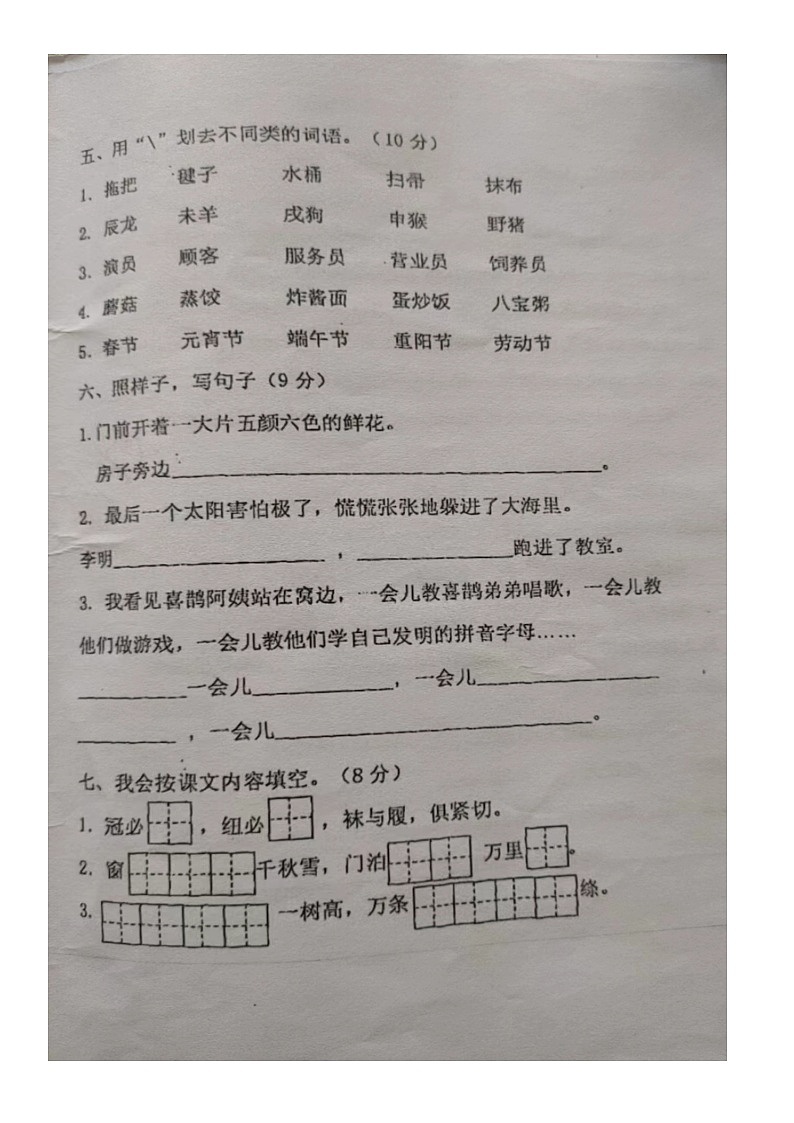 五、用“\”划去不同类的词语。（10 分）
1. 拖把 毽子 水桶 扫帚 抹布
2. 辰龙 未羊 戌狗 申猴 野猪
3. 演员 顾客 服务员 营业员 饲养员
4. 蘑菇 蒸饺 炸酱面 蛋炒饭 八宝粥
5. 春节 元宵节 端午节 重阳节 劳动节
六、照样子，写句子（9 分）
1.门前开着一大片五颜六色的鲜花。
房子旁边____________________。
2. 最后一个太阳害怕极了，慌慌张张地躲进了大海里。
李明__________，__________跑进了教室。
3. 我看见喜鹊阿姨站在窝边，一会儿教喜鹊弟弟唱歌，一会儿教
他们做游戏，一会儿教他们学自己发明的拼音字母……
________一会儿__________，一会儿____________
________，一会儿____________________。
七、我会按课文内容填空。（8 分）
1. 冠必 ，纽必 ，袜与履，俱紧切。
2. 窗 千秋雪，门泊 万里 。
3. 一树高，万条 绦。